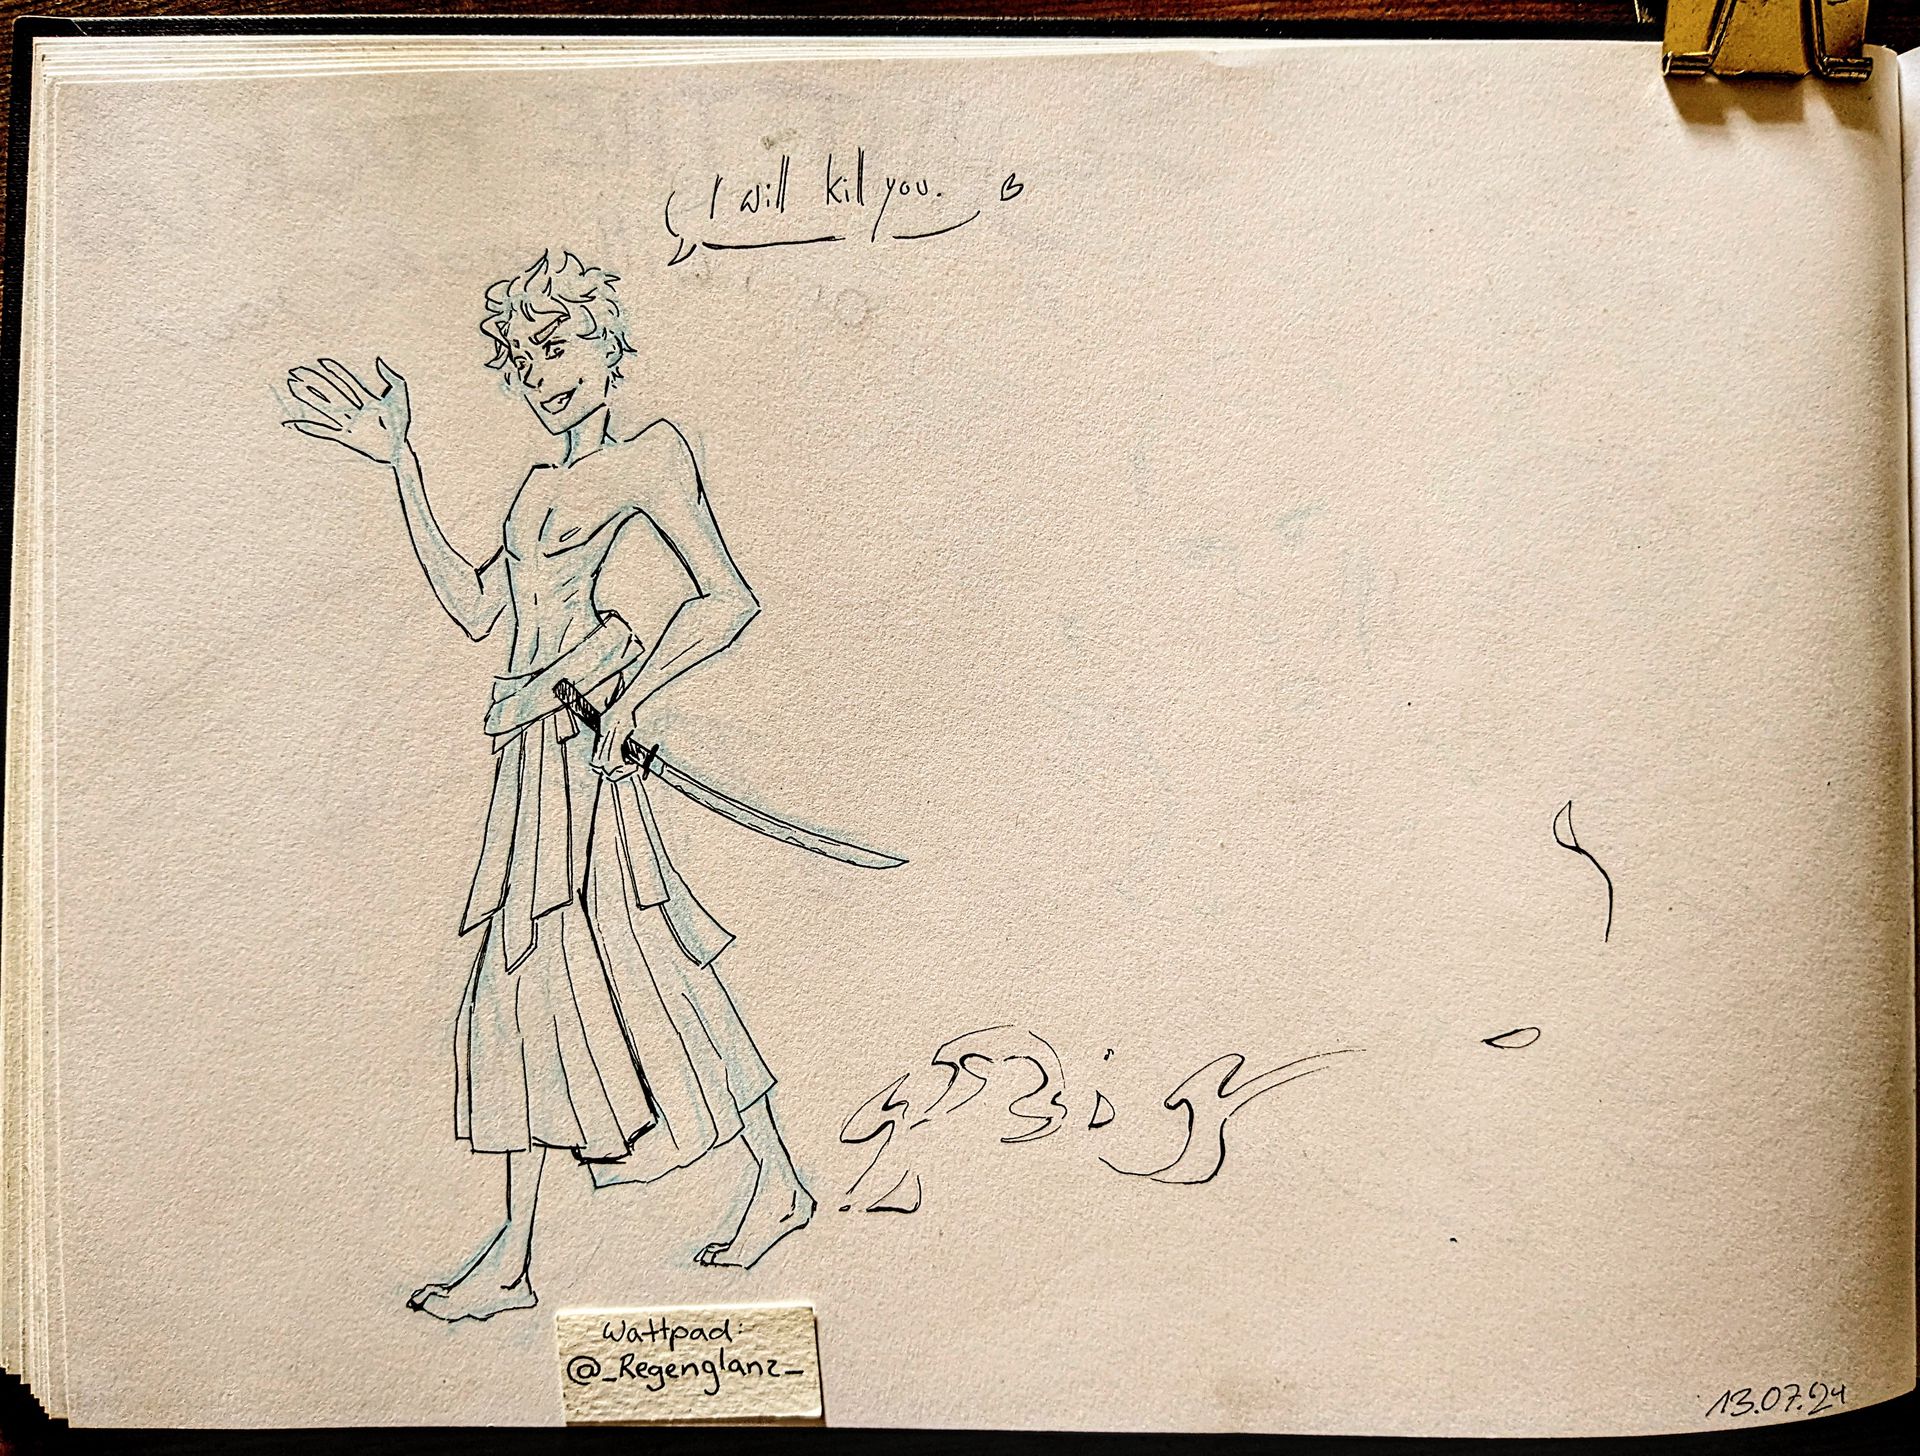 I will kill you.
Wattpad:
@_Regenglanz_
13.07.24